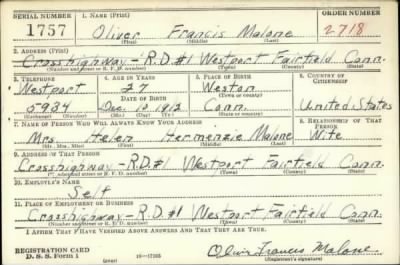 SERIAL NUMBER 1. NAME (Print) ORDER NUMBER
1757 Oliver Francis Malone 2718
(First) (Middle) (Last)
2. ADDRESS (Print)
Crosshighway-R.D.#1 Westport Fairfield Conn.
(Number and street or R. F. D. number) (Town) (County) (State)
3. TELEPHONE 4. AGE IN YEARS 5. PLACE OF BIRTH 6. COUNTRY OF CITIZENSHIP
Westport 27 Weston
DATE OF BIRTH (Town or county)
5934 Dec. 10 1912 Conn. United States
(Exchange) (Number) (Mo.) (Day) (Yr.) (State or country)
7. NAME OF PERSON WHO WILL ALWAYS KNOW YOUR ADDRESS 8. RELATIONSHIP OF THAT PERSON
Mrs. Helen Hermenzie Malone Wife
(Mr., Mrs., Miss) (First) (Middle) (Last)
9. ADDRESS OF THAT PERSON
Crosshighway-R.D.#1 Westport Fairfield Conn.
(Number and street or R. F. D. number) (Town) (County) (State)
10. EMPLOYER'S NAME
Self
11. PLACE OF EMPLOYMENT OR BUSINESS
Crosshighway-R.D.#1 Westport Fairfield Conn.
(Number and street or R. F. D. number) (Town) (County) (State)
I AFFIRM THAT I HAVE VERIFIED ABOVE ANSWERS AND THAT THEY ARE TRUE.
REGISTRATION CARD
D. S. S. Form 1 (over) Oliver Francis Malone
(Registrant's signature)